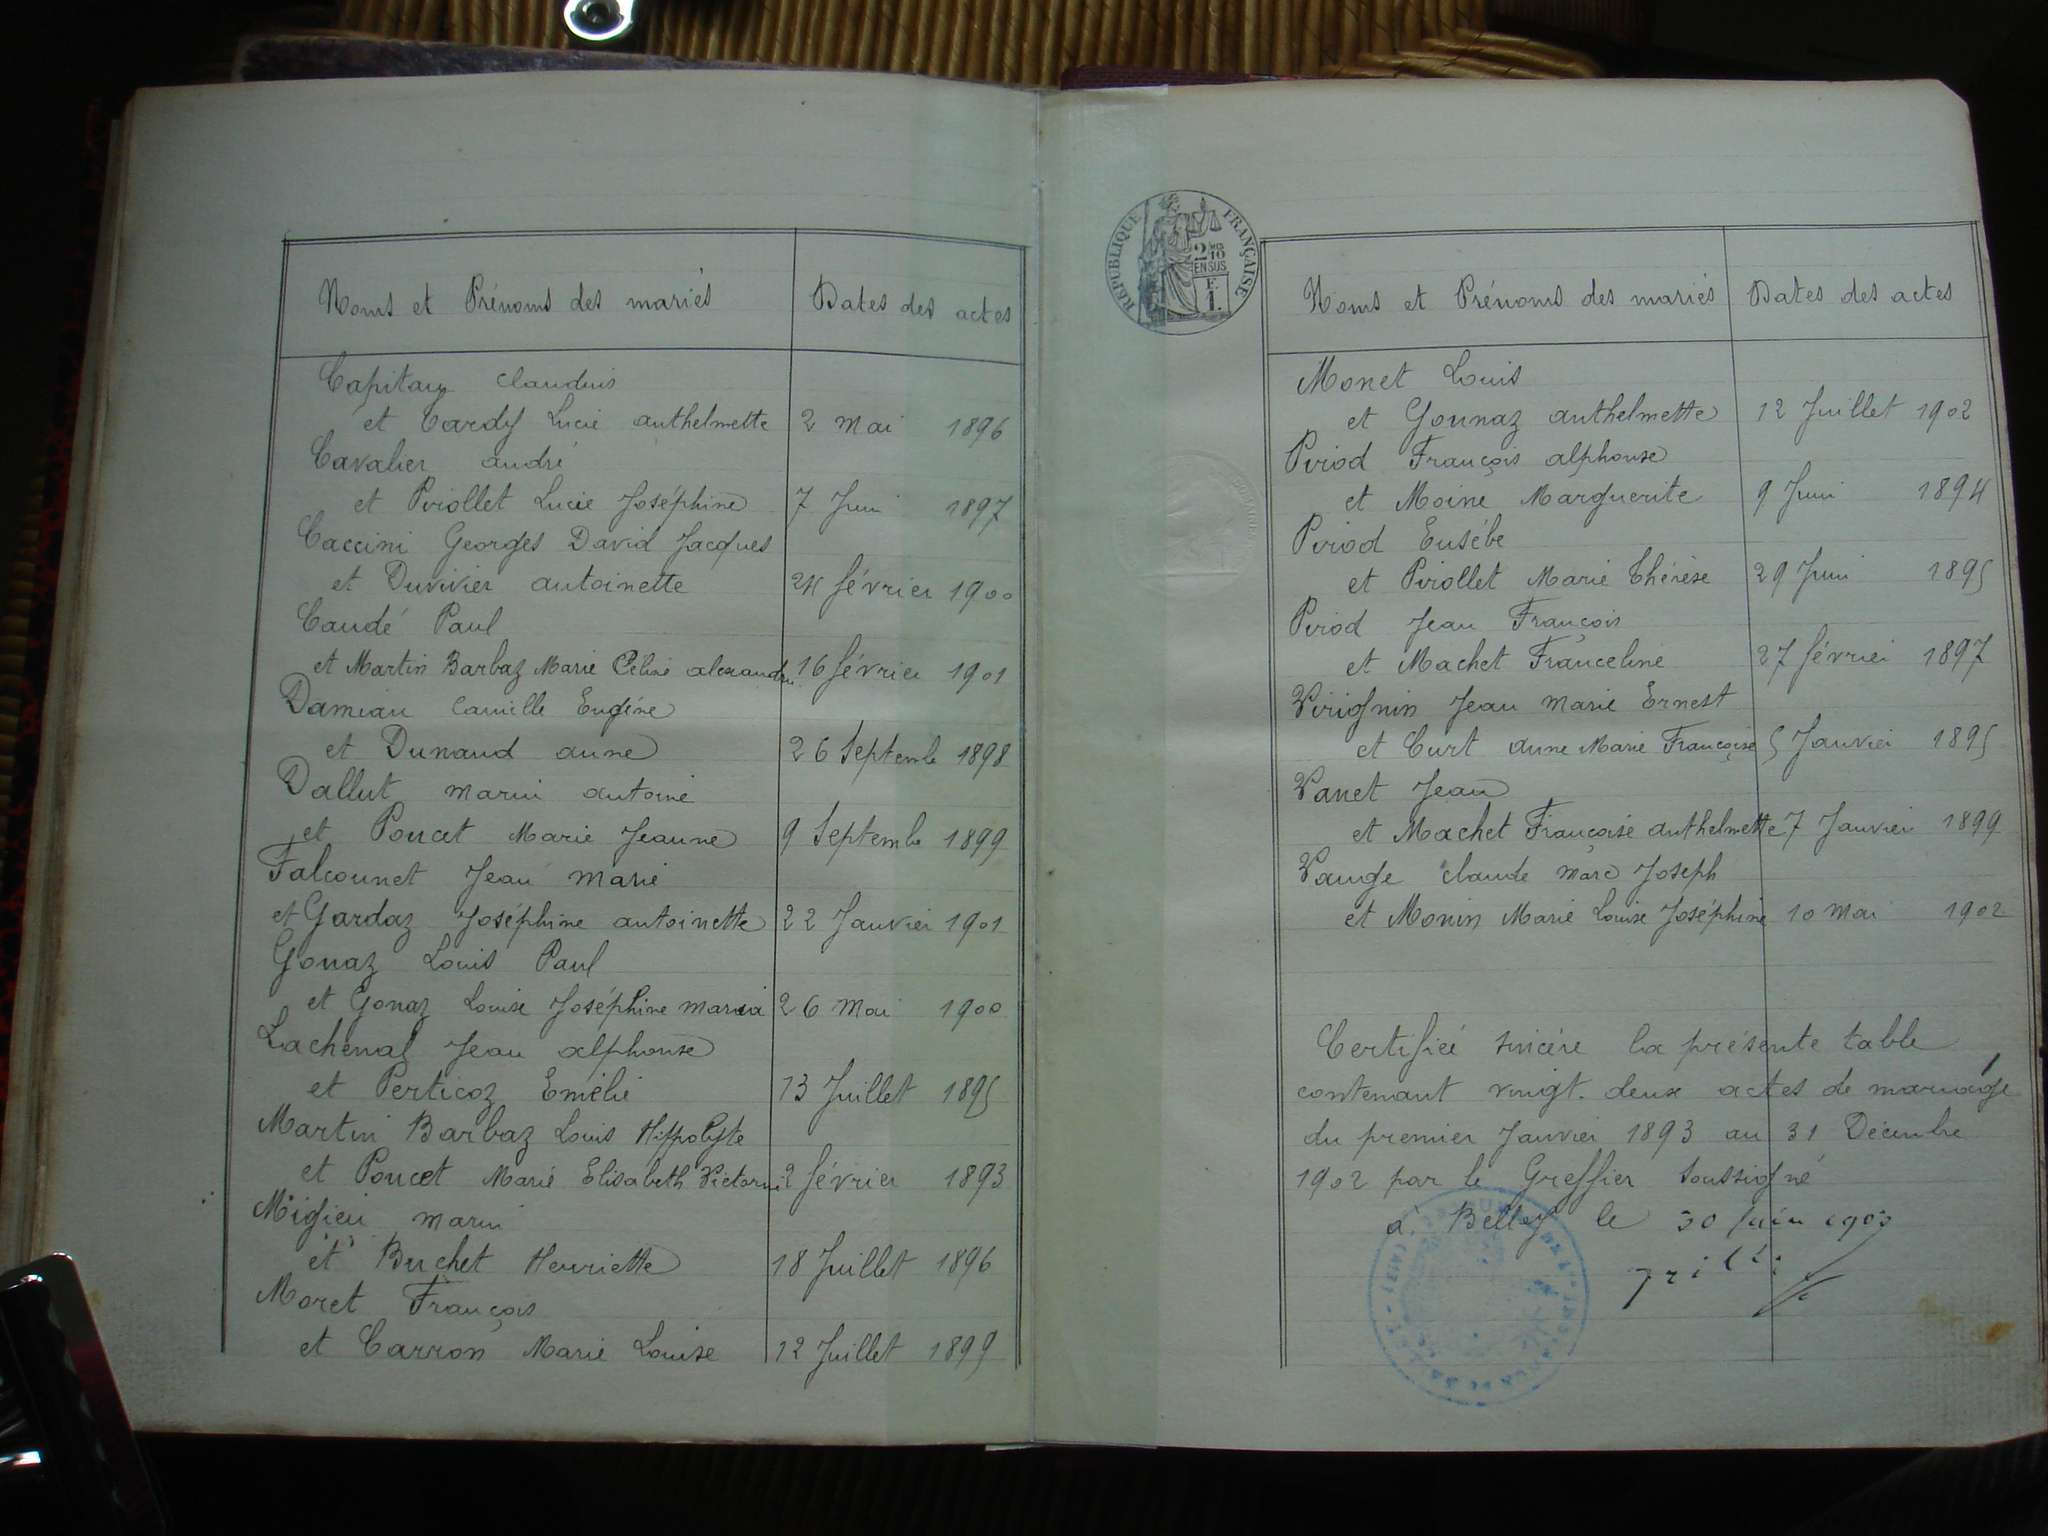 Noms et Prénoms des mariés
Dates des actes
Capitan Claudius
et Cardy Lucie anthelmette 2 Mai 1896
Cavalier andré
et Piollet Lucie Joséphine 7 Juin 1897
Caccini Georges David Jacques
et Duvivier antoinette 24 février 1900
Caudé Paul
et Martin Barbaz Marie Céline alexandri 16 février 1901
Damian Camille Eugène
et Dunand anne 26 Septemb 1898
Dallut marin antoine
et Poncet Marie Jeanne 9 Septemb 1899
Falconnet Jean marie
et Gardaz Joséphine antoinette 22 Janvier 1901
Gonaz Louis Paul
et Gonaz Louise Joséphine maria 26 Mai 1900
Lachenal Jean alphonse
et Perticoz Emélie 13 Juillet 1895
Martin Barbaz Louis Hippolyte
et Poncet Marie Elisabeth Victorine 2 février 1893
Migieu marin
et Buchet Henriette 18 Juillet 1896
Moret François
et Carron Marie Louise 12 Juillet 1899
RÉPUBLIQUE FRANÇAISE
2/10
EN SUS
F.
1.
Noms et Prénoms des mariés
Dates des actes
Monet Louis
et Gonnaz anthelmette 12 Juillet 1902
Piod François alphonse
et Moine Marguerite 9 Juin 1894
Piod Eusébe
et Piollet Marie Thérèse 29 Juin 1895
Piod Jean François
et Machet Franceline 27 février 1897
Virignin Jean Marie Ernest
et Curt anne Marie Françoise 5 Janvier 1895
Vanet Jean
et Machet Françoise anthelmette 7 Janvier 1899
Vauge claude marc Joseph
et Monin Marie Louise Joséphine 10 Mai 1902
Certifiée sincère la présente table
contenant vingt-deux actes de mariage
du premier Janvier 1893 au 31 Décembre
1902 par le Greffier soussigné
à Belley le 30 Juin 1903